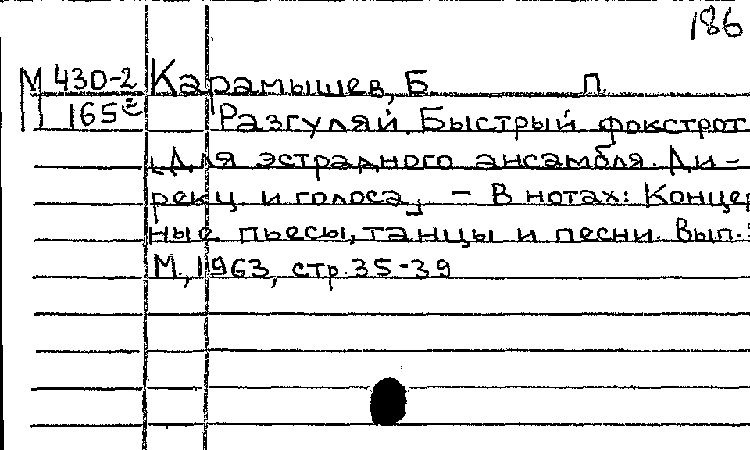 186
М 430-2 Карамышев, Б. П.
165 Разгуляй. Быстрый фокстрот
[Для эстрадного ансамбля. Ди-
рекц. и голоса] - В нотах: Концер
ные пьесы, танцы и песни. Вып.
М., 1963, стр. 35-39